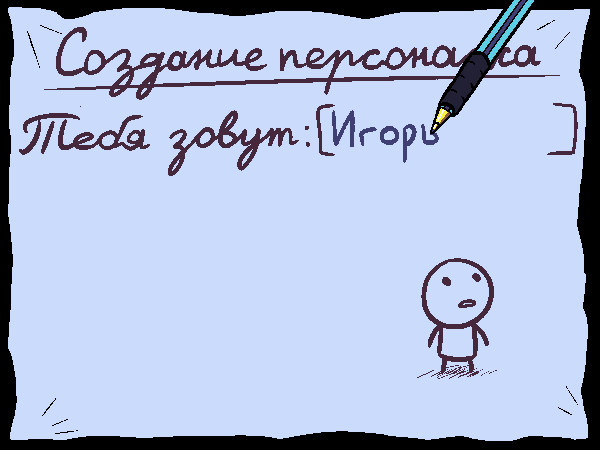 Создание персонажа
Тебя зовут: [Игорь]